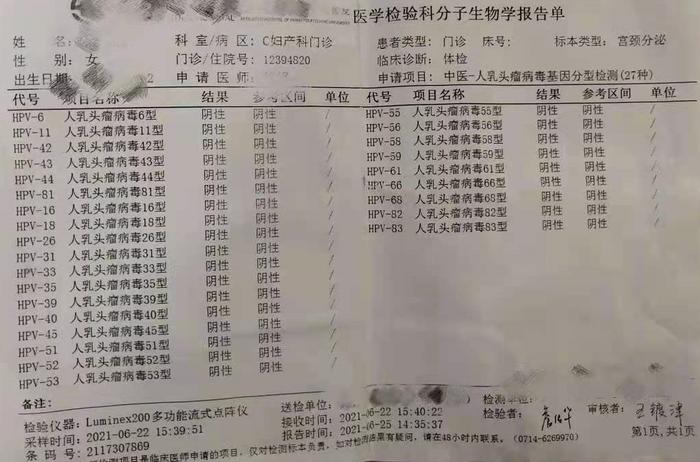 医学检验科分子生物学报告单
姓 名:
科 室/病 区: C妇产科门诊
患者类型: 门诊 床号: 标本类型: 宫颈分泌
性 别: 女
门诊/住院号: 12394820
临床诊断: 体检
出生日期 2
申 请 医 师:
申请项目: 中医-人乳头瘤病毒基因分型检测(27种)
代号 项目名称 结果 参考区间 单位
HPV-6 人乳头瘤病毒6型 阴性 阴性 /
HPV-11 人乳头瘤病毒11型 阴性 阴性 /
HPV-42 人乳头瘤病毒42型 阴性 阴性 /
HPV-43 人乳头瘤病毒43型 阴性 阴性 /
HPV-44 人乳头瘤病毒44型 阴性 阴性 /
HPV-81 人乳头瘤病毒81型 阴性 阴性 /
HPV-16 人乳头瘤病毒16型 阴性 阴性 /
HPV-18 人乳头瘤病毒18型 阴性 阴性 /
HPV-26 人乳头瘤病毒26型 阴性 阴性 /
HPV-31 人乳头瘤病毒31型 阴性 阴性 /
HPV-33 人乳头瘤病毒33型 阴性 阴性 /
HPV-35 人乳头瘤病毒35型 阴性 阴性 /
HPV-39 人乳头瘤病毒39型 阴性 阴性 /
HPV-40 人乳头瘤病毒40型 阴性 阴性 /
HPV-45 人乳头瘤病毒45型 阴性 阴性 /
HPV-51 人乳头瘤病毒51型 阴性 阴性 /
HPV-52 人乳头瘤病毒52型 阴性 阴性 /
HPV-53 人乳头瘤病毒53型 阴性 阴性 /
代号 项目名称 结果 参考区间 单位
HPV-55 人乳头瘤病毒55型 阴性 阴性 /
HPV-56 人乳头瘤病毒56型 阴性 阴性 /
HPV-58 人乳头瘤病毒58型 阴性 阴性 /
HPV-59 人乳头瘤病毒59型 阴性 阴性 /
HPV-61 人乳头瘤病毒61型 阴性 阴性 /
HPV-66 人乳头瘤病毒66型 阴性 阴性 /
HPV-68 人乳头瘤病毒68型 阴性 阴性 /
HPV-82 人乳头瘤病毒82型 阴性 阴性 /
HPV-83 人乳头瘤病毒83型 阴性 阴性 /
备注:
检验仪器: Luminex200多功能流式点阵仪
送检单位:
检测单位
采样时间: 2021-06-22 15:39:51
接收时间: 2021-06-22 15:40:22
检验者:
审核者:
条 码 号: 2117307869
报告时间: 2021-06-25 14:35:37
第1页,共1页
检测项目是临床医师申请的项目, 仅对检测标本负责, 如对检测结果有疑问, 请在48小时内联系。(0714-6269970)